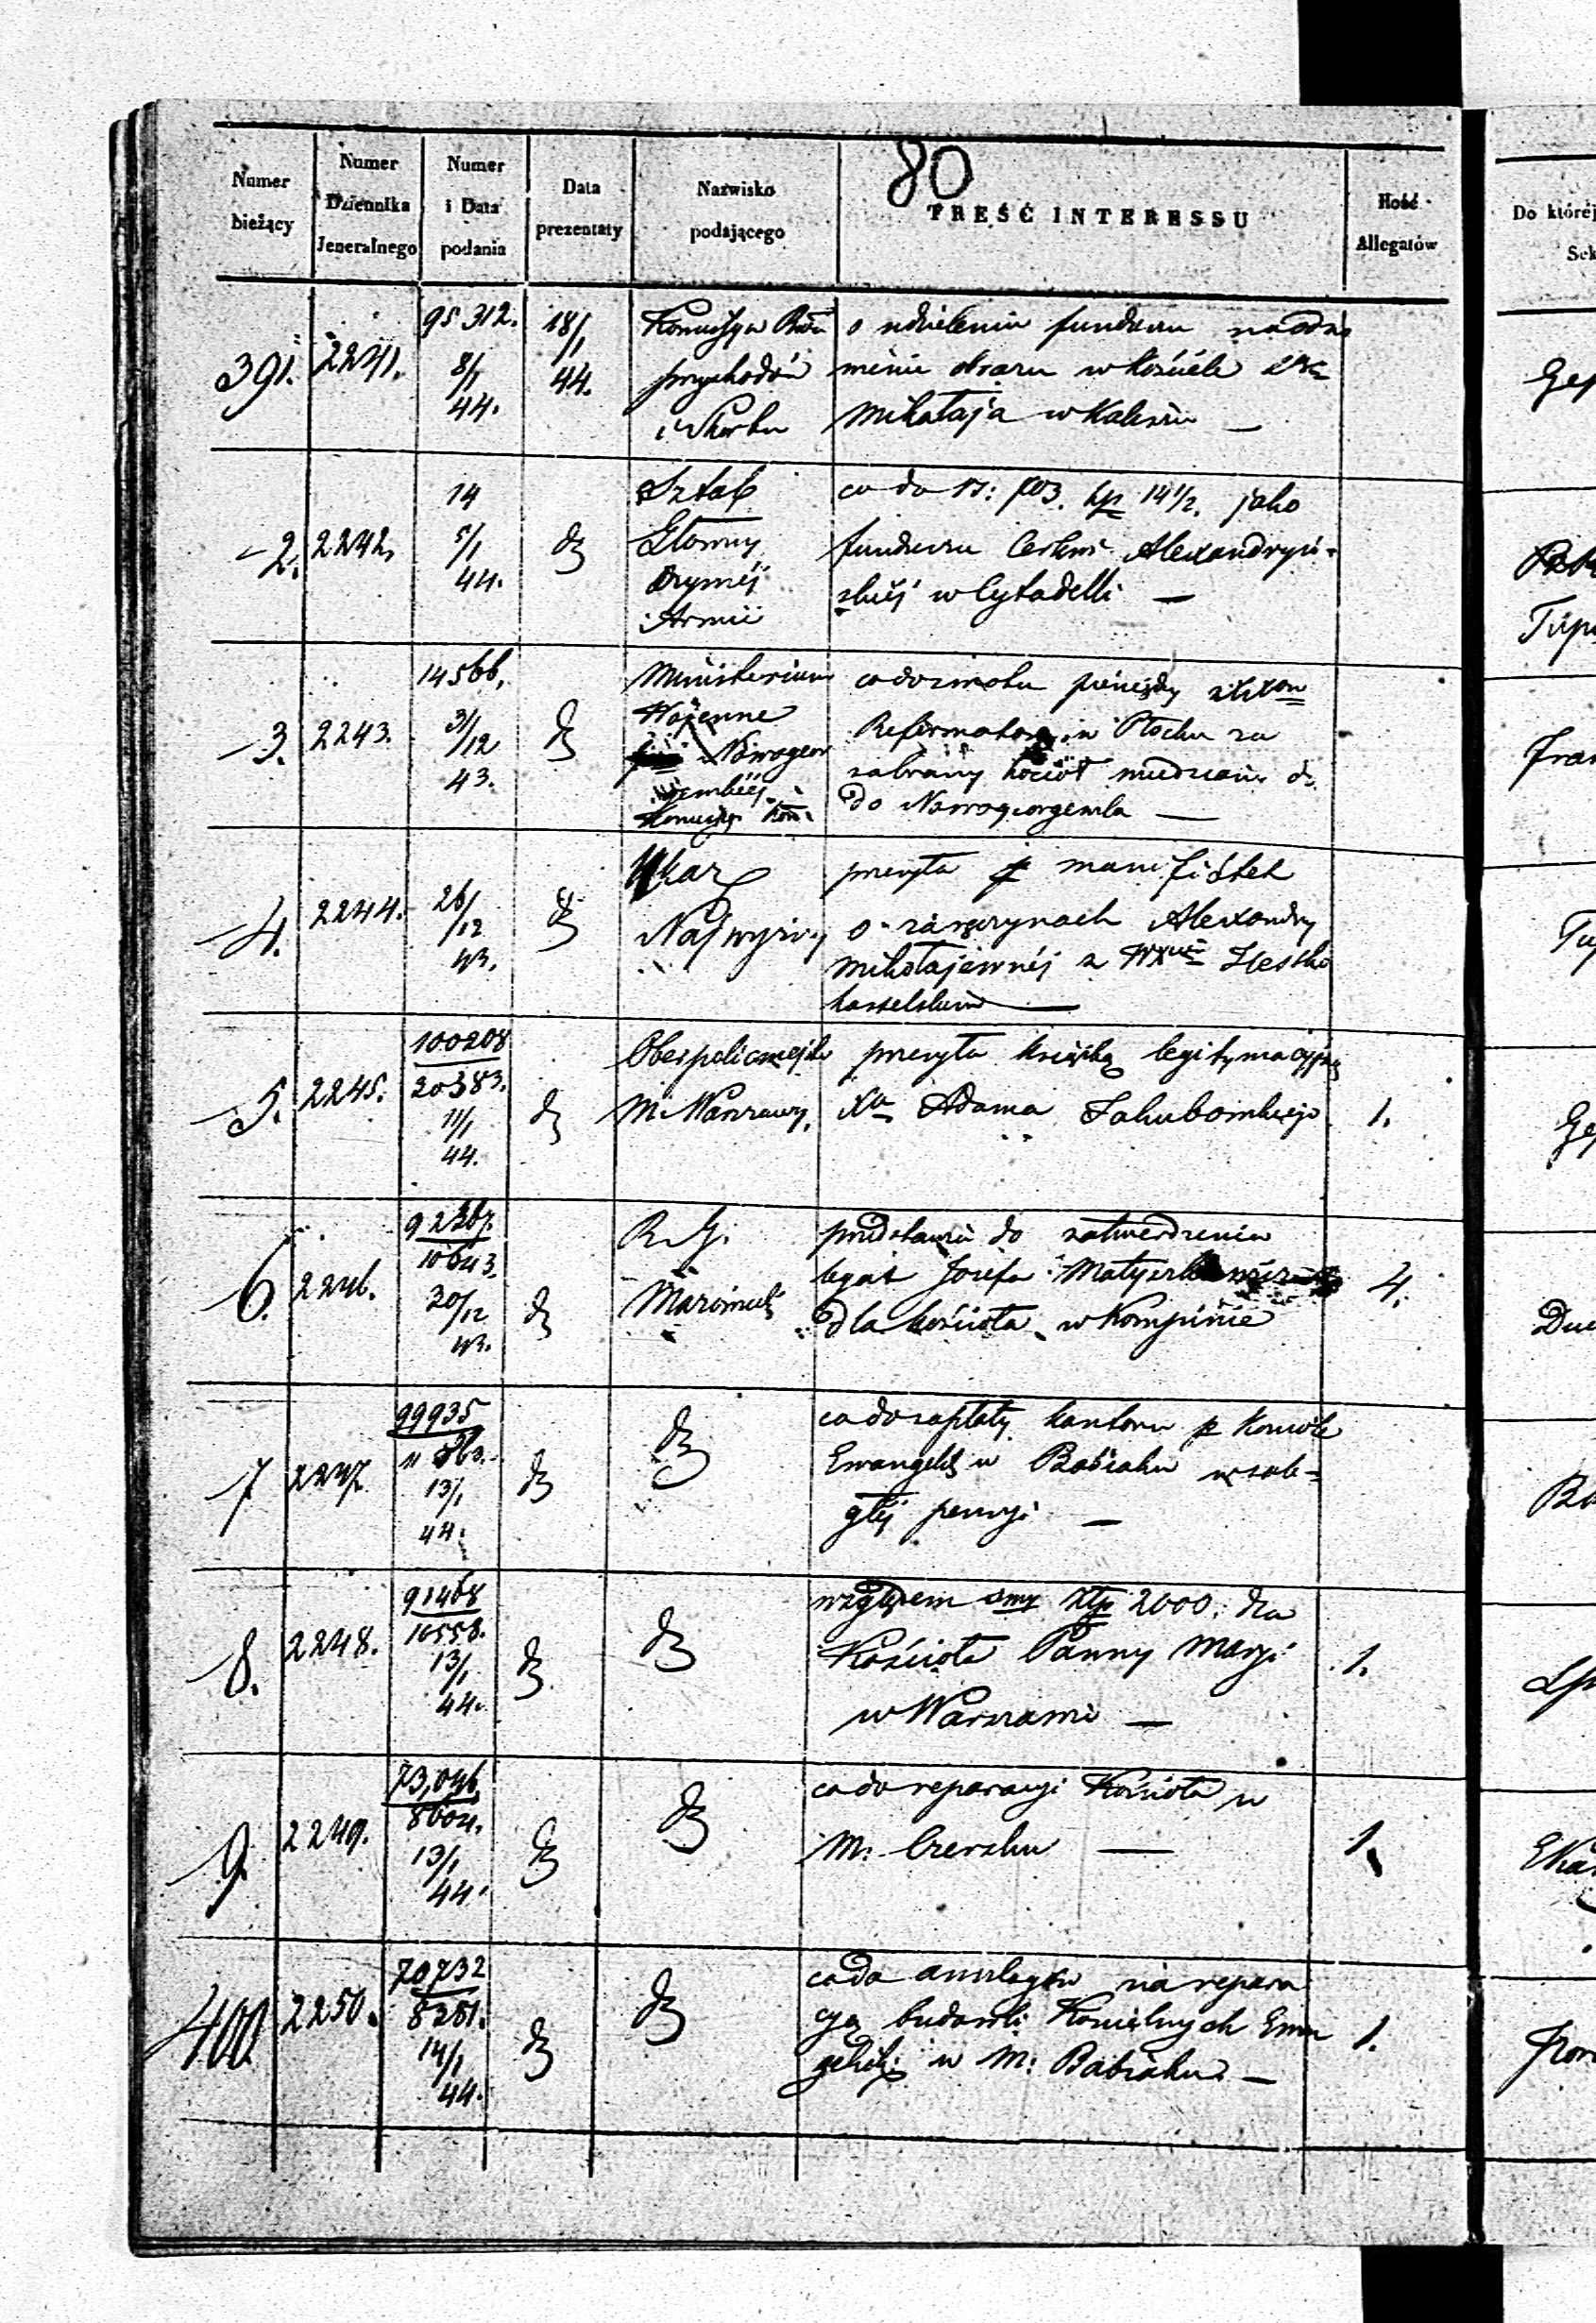 80
Numer bieżący
Numer Dziennika Jeneralnego
Numer i Data podania
Data prezentaty
Nazwisko podającego
TREŚĆ INTERESSU
Ilość Allegatów
Do której
Sek
391.
2241.
95312.
8/1
44.
18/1
44.
przychodów
i Skarbu
o udzielenie funduszu na odno
mienie ołtarza w Kościele
Mikołaja w Kaliszu —
2.
2242.
14
5/1
44.
Sztab
Główny
Czynnéj
Armii
co do rs: 703. kp 14 1/2. jako
funduszu Cerkwi Alexandryi-
skiéj w Cytadelli —
3.
2243.
14566.
31/12
43.
Ministerium
Wojenne
co do zwrotu pieniędzy
Reformatow w Płocku za
zabrany kocioł miedziany
do Nowogeorgewska —
4.
2244.
26/12
43.
Ukaz
Najwyższy
przesyła manifest
o zaręczynach Alexandry
Mikołajewnéj z Hessko
kasselskim —
5.
2245.
100208
20383.
11/1
44.
Oberpolicmejster
M. Warszawy.
przesyła książkę legitymacyjną
Xa Adama Jakubowskiego
1.
6.
2246.
10643.
30/12
43.
R. G.
Mazowiecki
przedstawia do zatwierdzenia
legat Józefa
dla kościoła w Kompinie
4.
7
2247.
99935
11863.
13/1
44.
co do zapłaty kantoru
Ewangelic w Babiaku w zale-
głéj pensyi —
8.
2248.
91468
10558.
13/1
44.
względem summy Złp 2000. dla
Kościoła Panny Maryi
w Warszawie —
1.
9.
2249.
73,046
8604.
13/1
44.
co do reparacyi Kościoła w
M. Czersku —
1.
400.
2250.
70732
8281.
14/1
44.
co do na repara
cyą budowli Kościelnych Ewan
gelick: w M: Babiaku —
1.